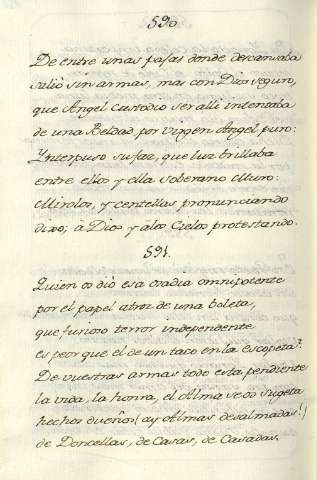 590.
De entre unas pajas donde descansaba
salió sin armas, mas con Dios seguro,
que Angel Custodio ser alli intentaba
de una Beldad por virgen Angel puro:
Ynterpuso su faz, que luz brillaba
entre ellos y ella soberano Muro:
Mirolos, y centellas pronunciando
dixo; à Dios y alos Cielos protestando.
591.
Quien os dió esa osadia omnipotente
por el papel atroz de una boleta,
que furioso terror independente
es peor que el de un taco en la escopeta?
De vuestras armas todo esta pendiente
la vida, la honra, el Alma se os sugeta
hechos dueños (ay Almas desalmadas!)
de Doncellas, de Casas, de Casadas.